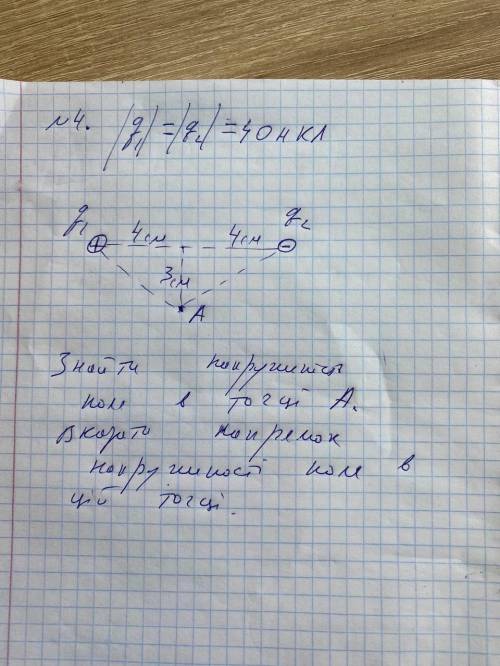 №4. |q₁|=|q₂|=40 нКл
q₁ q₂
+ 4см 4см -
3см
A
Знайти напруженість
поля в точці А.
Вказати напрямок
напруженості поля в
цій точці.